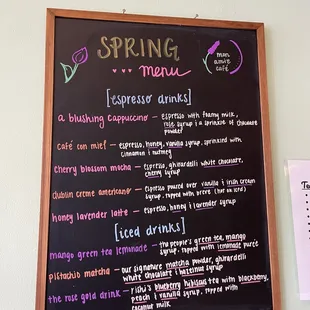 SPRING
menu
mon
amie
café
[espresso drinks]
a blushing cappuccino - espresso with foamy milk,
rose syrup & a sprinkle of chocolate
powder
café con miel - espresso, honey, vanilla syrup, sprinkled with
cinnamon & nutmeg
cherry blossom mocha - espresso, ghirardelli white chocolate,
cherry syrup
dublin creme americano - espresso poured over vanilla & irish cream
syrup, topped with breve (hot or iced)
honey lavender latte - espresso, honey & lavender syrup
[iced drinks]
mango green tea lemonade - the people's green tea, mango
syrup, topped with lemonade
pistachio matcha - our signature matcha powder, ghirardelli
white chocolate & hazelnut syrup
the rose gold drink - rishi's blueberry hibiscus tea with blackberry,
peach & vanilla syrup, topped with
coconut milk